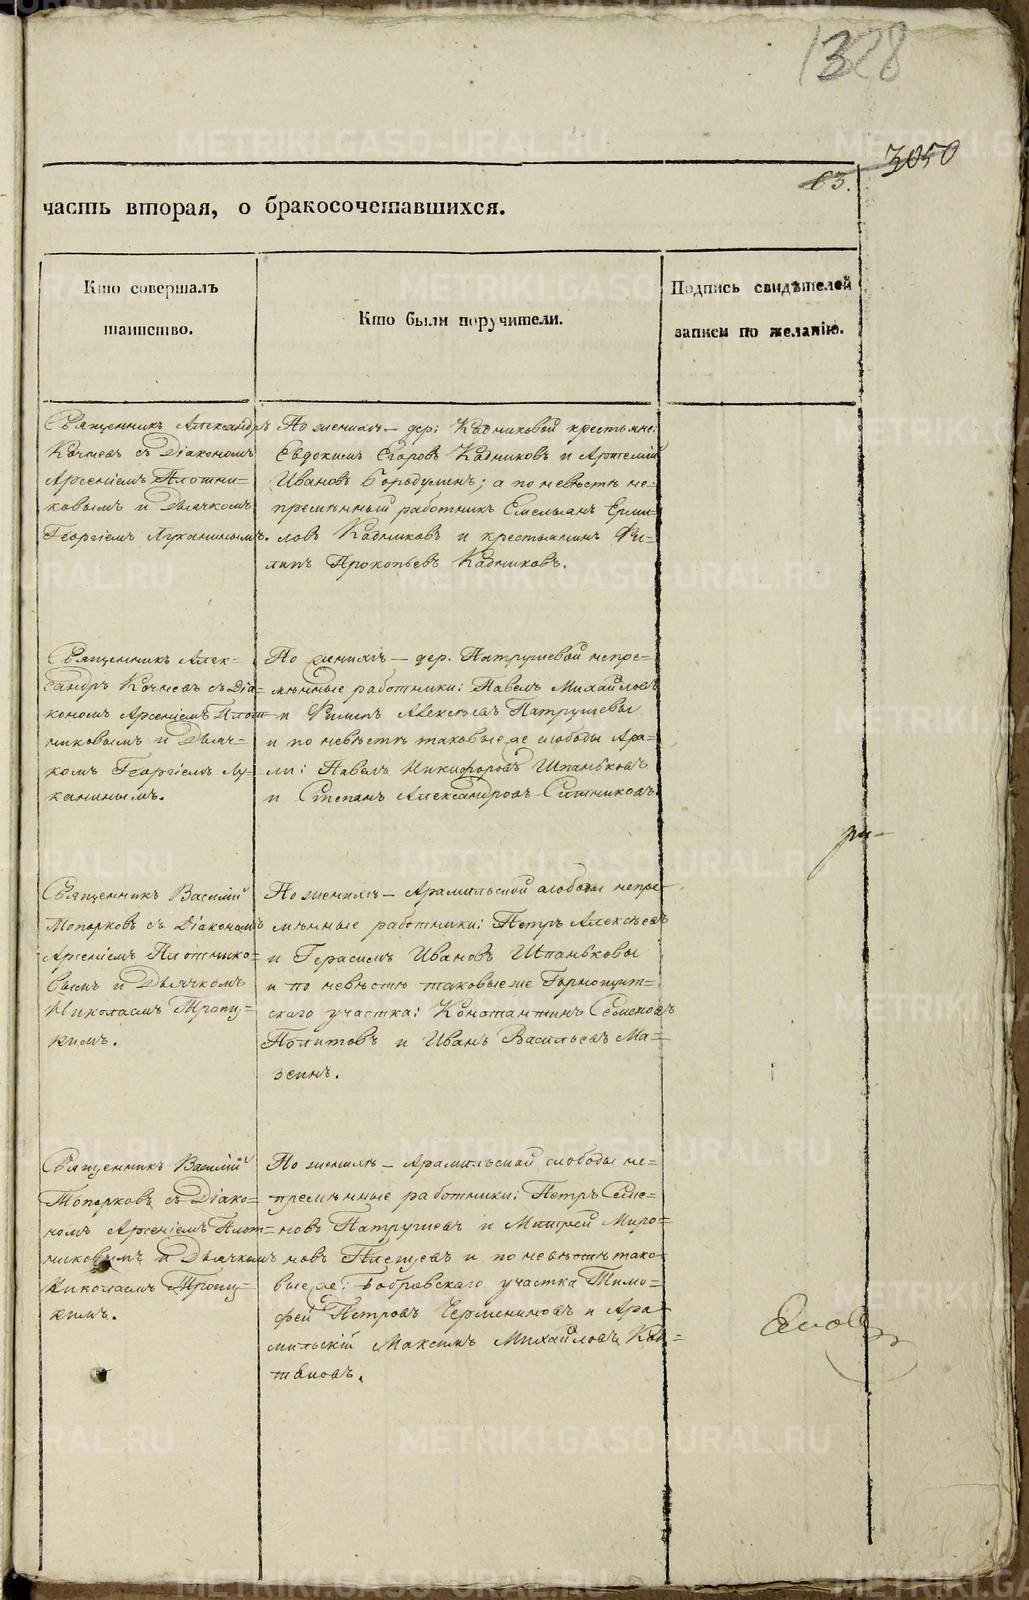 1328
3050
63.
часть вторая, о бракосочетавшихся.
Кто совершалъ
таинство.
Кто были поручители.
Подпись свидѣтелей
записи по желанію.
Священникъ Александръ
Кочневъ съ Діакономъ
Арсеніемъ Плотни=
ковымъ и Дьячкомъ
Георгіемъ Луканинымъ.
По женихѣ — дер: Кадниковой крестьяне:
Евдокимъ Егоровъ Кадниковъ и Артемій
Ивановъ Бородулинъ; а по невѣстѣ не=
премѣнный работникъ Емельянъ Ерми=
ловъ Кадниковъ и крестьянинъ Фи=
липъ Прокопьевъ Кадниковъ.
Священникъ Алек=
сандръ Кочневъ съ Діа=
кономъ Арсеніемъ Плот=
никовымъ и Дьяч=
комъ Георгіемъ Лу=
канинымъ.
По женихѣ — дер. Патрушевой непре=
мѣнные работники: Павелъ Михайловъ
и Филипъ Алексѣевъ Патрушевы
и по невѣстѣ таковые же слободы Ара=
ми: Павелъ Никифоровъ Шпаньковъ
и Степанъ Александровъ Ситниковъ.
Священникъ Василій
Топорковъ съ Діакономъ
Арсеніемъ Плотнико=
вымъ и Дьячкомъ
Николаемъ Тропи=
кимъ.
По женихѣ — Арамильской слободы непре=
мѣнные работники: Петръ Алексѣевъ
и Герасимъ Ивановъ Шпаньковы
и по невѣстѣ таковые же Горнощит=
скаго участка: Константинъ Семеновъ
Политовъ и Иванъ Васильевъ Ма=
зеинъ.
Священникъ Василій
Топорковъ съ Діако=
номъ Арсеніемъ Плот=
никовымъ и Дьячкомъ
Николаемъ Тропи=
кимъ.
По женихѣ — Арамильской слободы не=
премѣнные работники: Петръ Семе=
новъ Патрушевъ и Миро=
новъ и по невѣстѣ тако=
вые же: Бобровскаго участка Тимо=
фей Петровъ Черемениновъ и Ара=
мильскій Максимъ Михайловъ